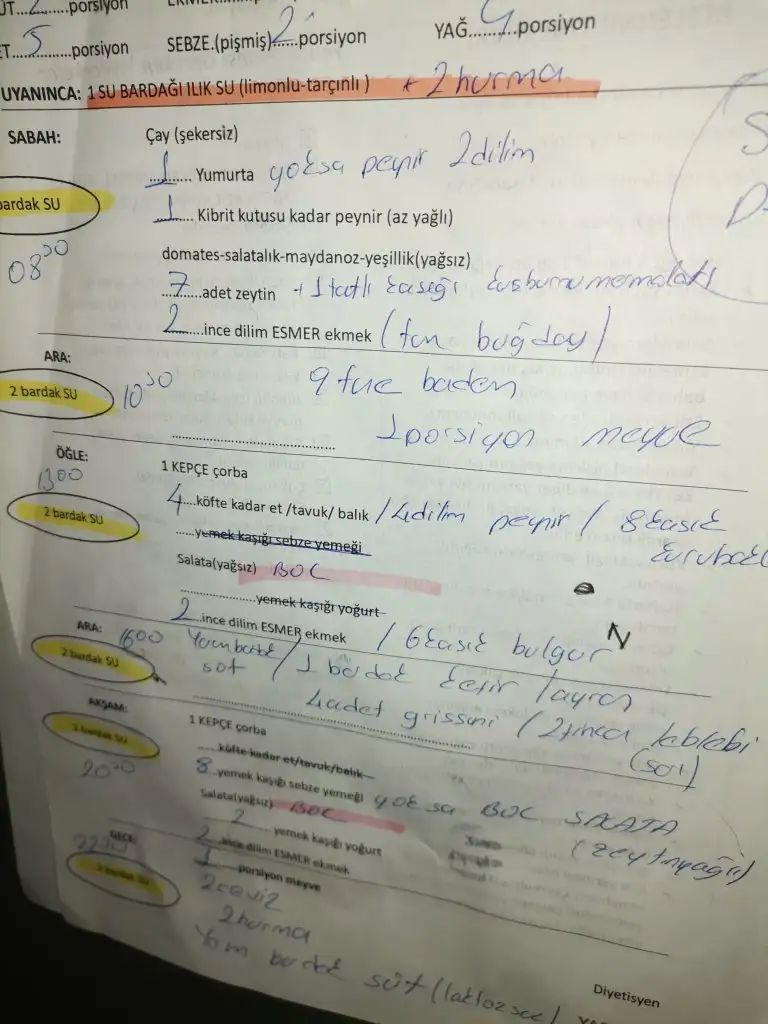 ÜT...2......porsiyon
ET....5......porsiyon SEBZE.(pişmiş)..2...porsiyon YAĞ....4....porsiyon
UYANINCA: 1 SU BARDAĞI ILIK SU (limonlu-tarçınlı ) + 2 hurma
SABAH: Çay (şekersiz)
....1.... Yumurta yoksa peynir 2 dilim
bardak SU
....1.... Kibrit kutusu kadar peynir (az yağlı)
08 30
domates-salatalık-maydanoz-yeşillik(yağsız)
....7....adet zeytin + 1 tatlı kaşığı kuşburnu marmelatı
....2....ince dilim ESMER ekmek (tam buğday)
ARA:
2 bardak SU 10 30 9 tne badem
1 porsiyon meyve
ÖĞLE: 1 KEPÇE çorba
13 00
4....köfte kadar et /tavuk/ balık / 4 dilim peynir / 8 kaşık
kurubakl
2 bardak SU
......yemek kaşığı sebze yemeği
Salata(yağsız) BOL
....................yemek kaşığı yoğurt
2...ince dilim ESMER ekmek / 6 kaşık bulgur
ARA: 16 00 Yarım bardak
2 bardak SU süt / 1 bardak kefir / ayran
4 adet grissini / 2 leblebi
(sarı)
AKŞAM: 1 KEPÇE çorba
2 bardak SU
........köfte kadar et/tavuk/balık
20 30
8...yemek kaşığı sebze yemeği yoksa BOL SALATA
Salata(yağsız) BOL (zeytinyağlı)
2 yemek kaşığı yoğurt
2...ince dilim ESMER ekmek
GECE: 1.....porsiyon meyve
2 bardak SU
2 ceviz
2 hurma
Yarım bardak süt (laktozsuz)
Diyetisyen